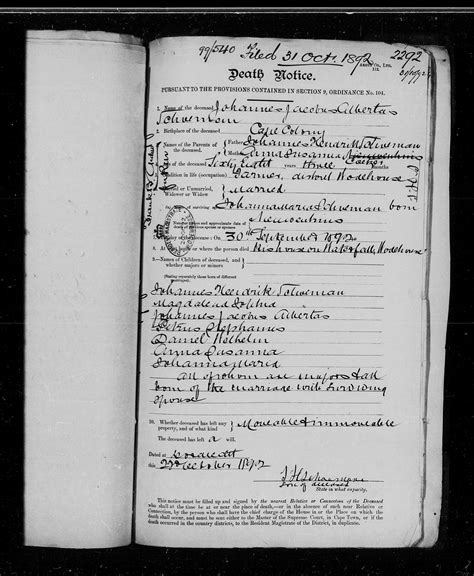 99/540 Filed 31 Oct. 1892 2292
Death Notice.
PURSUANT TO THE PROVISIONS CONTAINED IN SECTION 9, ORDINANCE No. 104.
1. Name of the deceased Johannes Jacobus Albertas
Schoeman
2. Birthplace of the deceased Cape Colony
3. Names of the Parents of the deceased. Father Johannes Hendrik Schoeman
Mother Anna Susanna
4. Age of the deceased Sixty Eight years three months
5. Condition in life (occupation) Farmer, district Wodehouse
Married or Unmarried, Widower or Widow Married
surviving Johanna Maria Schoeman born
7. The day of the decease: On 30th September 1892
8. where the person died His house on Waterfall, Wodehouse
9.—Names of Children of deceased, and whether majors or minors
(Stating separately those born of different marriages).
Johannes Hendrik Schoeman
Magdalena Sophia
Johannes Jacobus Albertas
Petrus Stephanus
Daniel Wilhelm
Anna Susanna
Johanna Maria
all of whom are majors & all
born of the marriage with surviving
spouse
10. Whether deceased has left any property, and of what kind Moveable & immoveable
The deceased has left a will.
Dated at Dordrecht
this 22nd October 1892
J H Schoeman
Son of deceased
State in what capacity.
This notice must be filled up and signed by the nearest Relative or Connection of the Deceased
who shall at the time be at or near the place of death,—or in the absence of such near Relative or
Connection, by the person who shall have chief charge of the House in or the Place on which the
death shall occur, and must be sent either to the Master of the Supreme Court, in Cape Town, or if the
death occurred in the country districts, to the Resident Magistrate of the District, in duplicate.